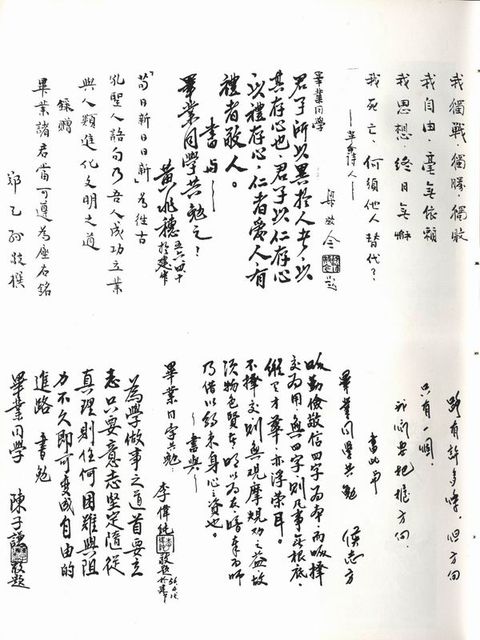 我獨戰,獨勝獨敗
我自由,毫無依賴
我思想,終日無嘛
我死亡,何須他人替代?
畢業同學
君子所以異於人者,以
其存心也,君子以仁存心
以禮存心,仁者愛人,有
禮者敬人。
書与
畢業同學共勉之!
黃兆穗
「苟日新日日新」為往古
孔聖人語句乃吾人成功立業
與人類進化文明之道
錄贈
畢業諸君當可遵為座右銘
路有許多條,但方向
只有一個,
方向.
書此与
畢業同學共勉
侯志方
以勤儉敬信四字為本而以擇
交為用,無四字則凡事無根底,
不擇交則無觀摩規劝之益故
乃借以約束身心之資也。
書與
畢業同學共勉
李偉純
為學做事之道首要立
志只要意志堅定隨從
真理則任何困難與阻
力不久即可變成自由的
進路 書勉
畢業同學 陳子謙 敬題